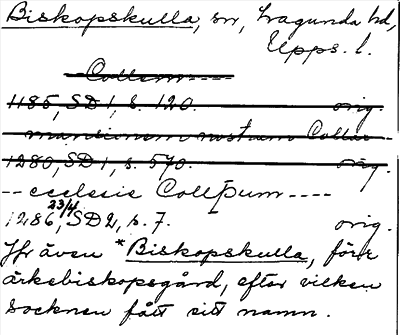 Biskopskulla, sn, Lagunda hd,
Upps. l.
-- Collum ----
1185, SD 1, s. 120. orig.
-- mansionem nostram Collar --
1280, SD 1, s. 570. orig.
-- ecclesie Collþum ----
1286 23/4, SD 2, s. 7. orig.
Jfr även *Biskopskulla, förr
ärkebiskopsgård, efter vilken
socknen fått sitt namn.